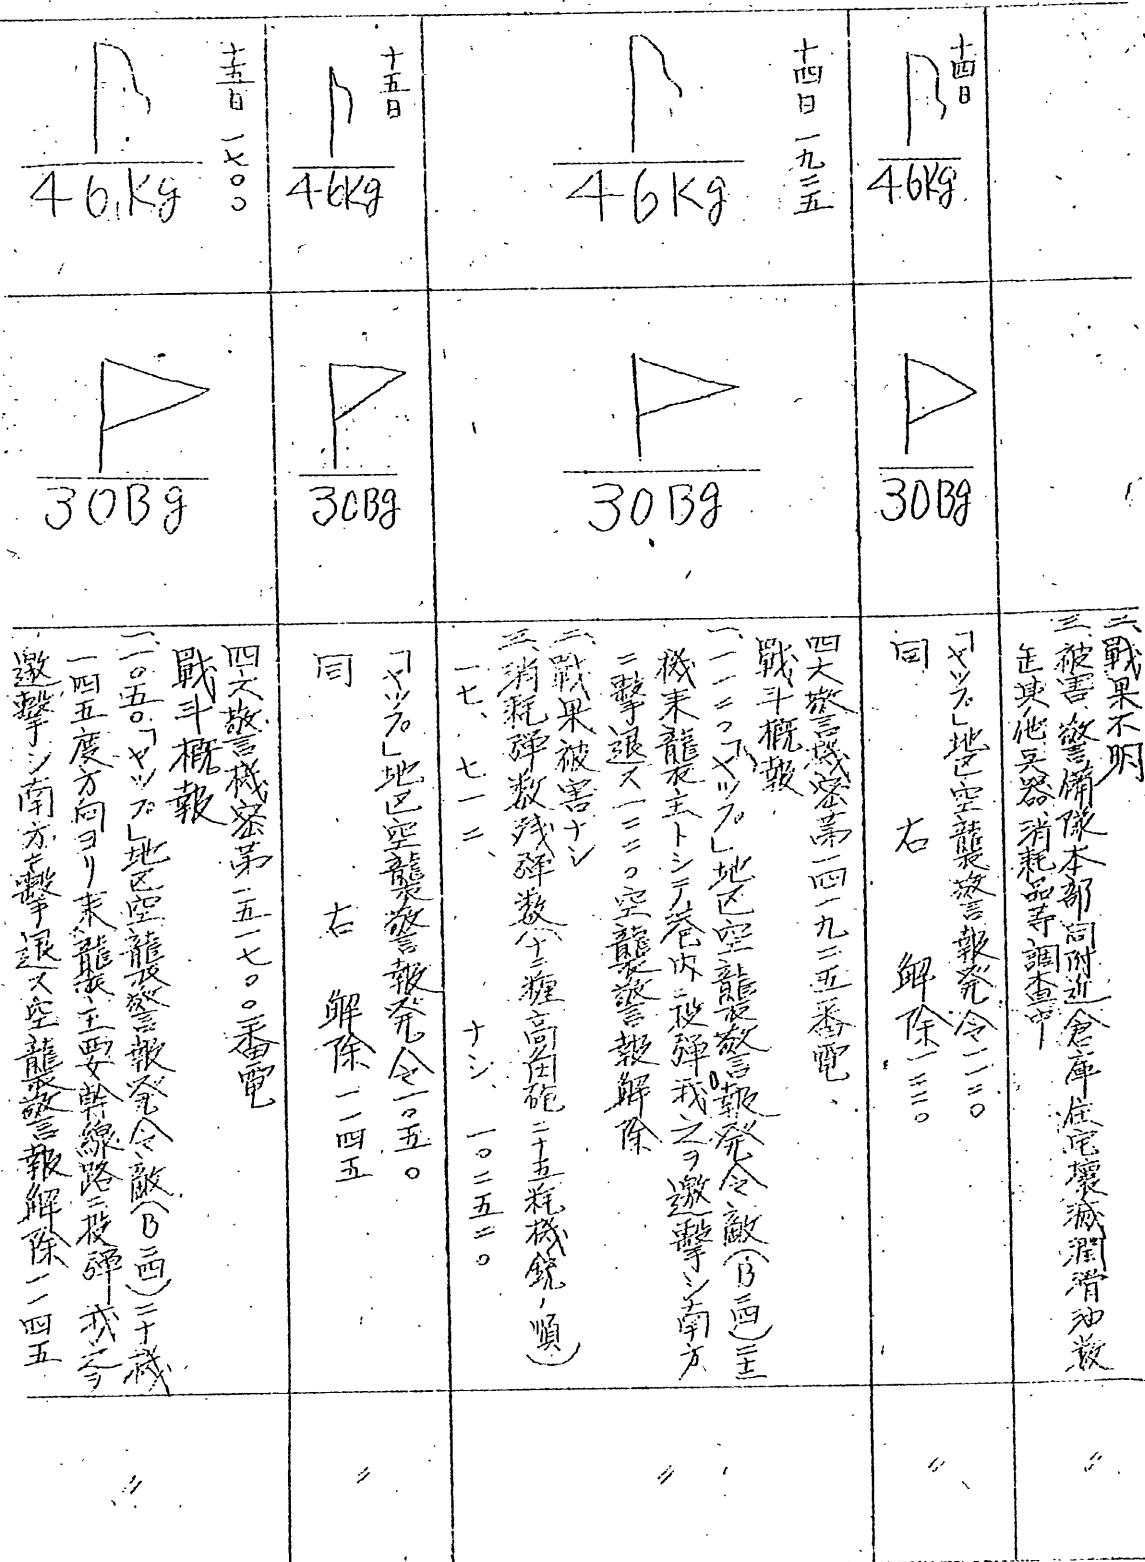 二、戰果不明
三、被害 警備隊本部同附近倉庫住宅壊滅潤滑油数
缶其ノ他兵器消耗品等調査中
〃
十四日
46Kg
30Bg
「ヤップ」地区空襲警報発令一一二〇
同 右 解除一二二〇
〃
十四日 一九二五
46Kg
30Bg
四六警機密第一四一九二五番電
戰斗概報
一、一一二〇「ヤップ」地区空襲警報発令、敵(B二四)二十
機来襲主トシテ港内ニ投弾我之ヲ邀撃シ南方
ニ撃退ス一二二〇空襲警報解除
二、戰果被害ナシ
三、消耗弾数残弾数(十二糎高角砲二十五粍機銃ノ順)
一七、七一二、 ナシ、一〇二五二〇
〃
十五日
46Kg
30Bg
「ヤップ」地区空襲警報発令一〇五〇
同 右 解除一一四五
〃
十五日 一七〇〇
46Kg
30Bg
四六警機密第一五一七〇〇番電
戰斗概報
一、一〇五〇「ヤップ」地区空襲警報発令、敵(B二四)二十機
一四五度方向ヨリ来襲主要幹線路ニ投弾我之ヲ
邀撃シ南方ニ撃退ス空襲警報解除一一四五
〃